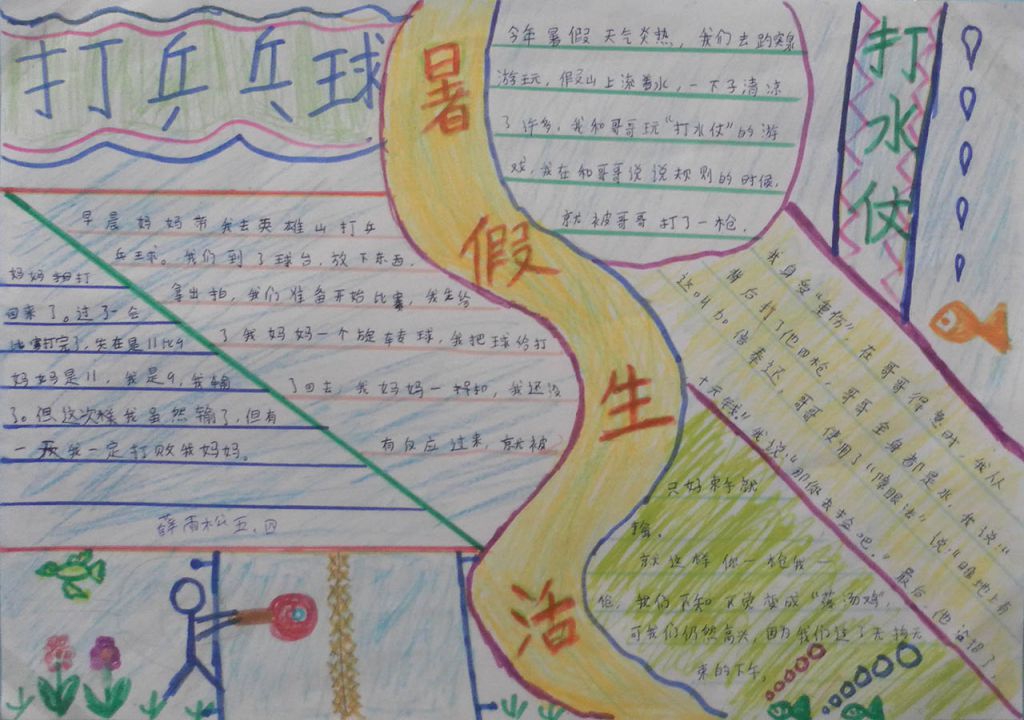 打乒乓球
暑假生活
打水仗
早晨妈妈带我去英雄山打乒
乓球。我们到了球台，放下东西，
拿出拍，我们准备开始比赛，我先给
了我妈妈一个旋转球，我把球给打
了回去，我妈妈一
有反应过来，就被
妈妈
回来了。过了一会
比赛打完了，
妈妈是11，我是9，我输
了。但这次
我虽然输了，但有
一天我一定打败我妈妈。
五、四
今年暑假天气炎热，我们去趵突泉
游玩，假山上流着水，一下子清凉
了许多，我和哥哥玩“打水仗”的游
戏，我在和哥哥说说规则的时候，
就被哥哥打了一枪。
我身受“重伤”，在哥哥得意时，我从
背后打了他四枪，哥哥全身都是水，我说：“
这叫加倍奉还，哥哥使用了“障眼法”说：“瞧地上有
十元钱。”我说：“那你去捡吧。”最后，他没招了，
只好束手就
擒。
就这样你一枪我一
枪，我们不知不觉变成“落汤鸡”，
可我们仍然高兴，因为我们过了
的下午。